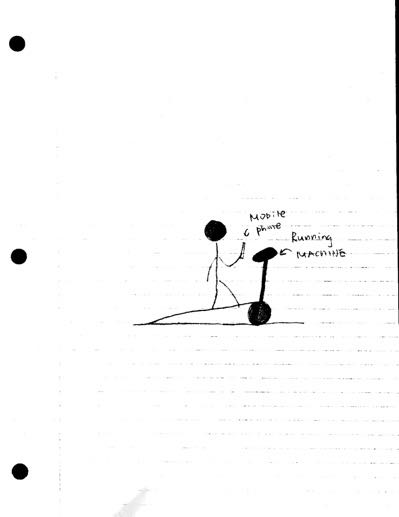 Mobile
phone
Running
MACHINE